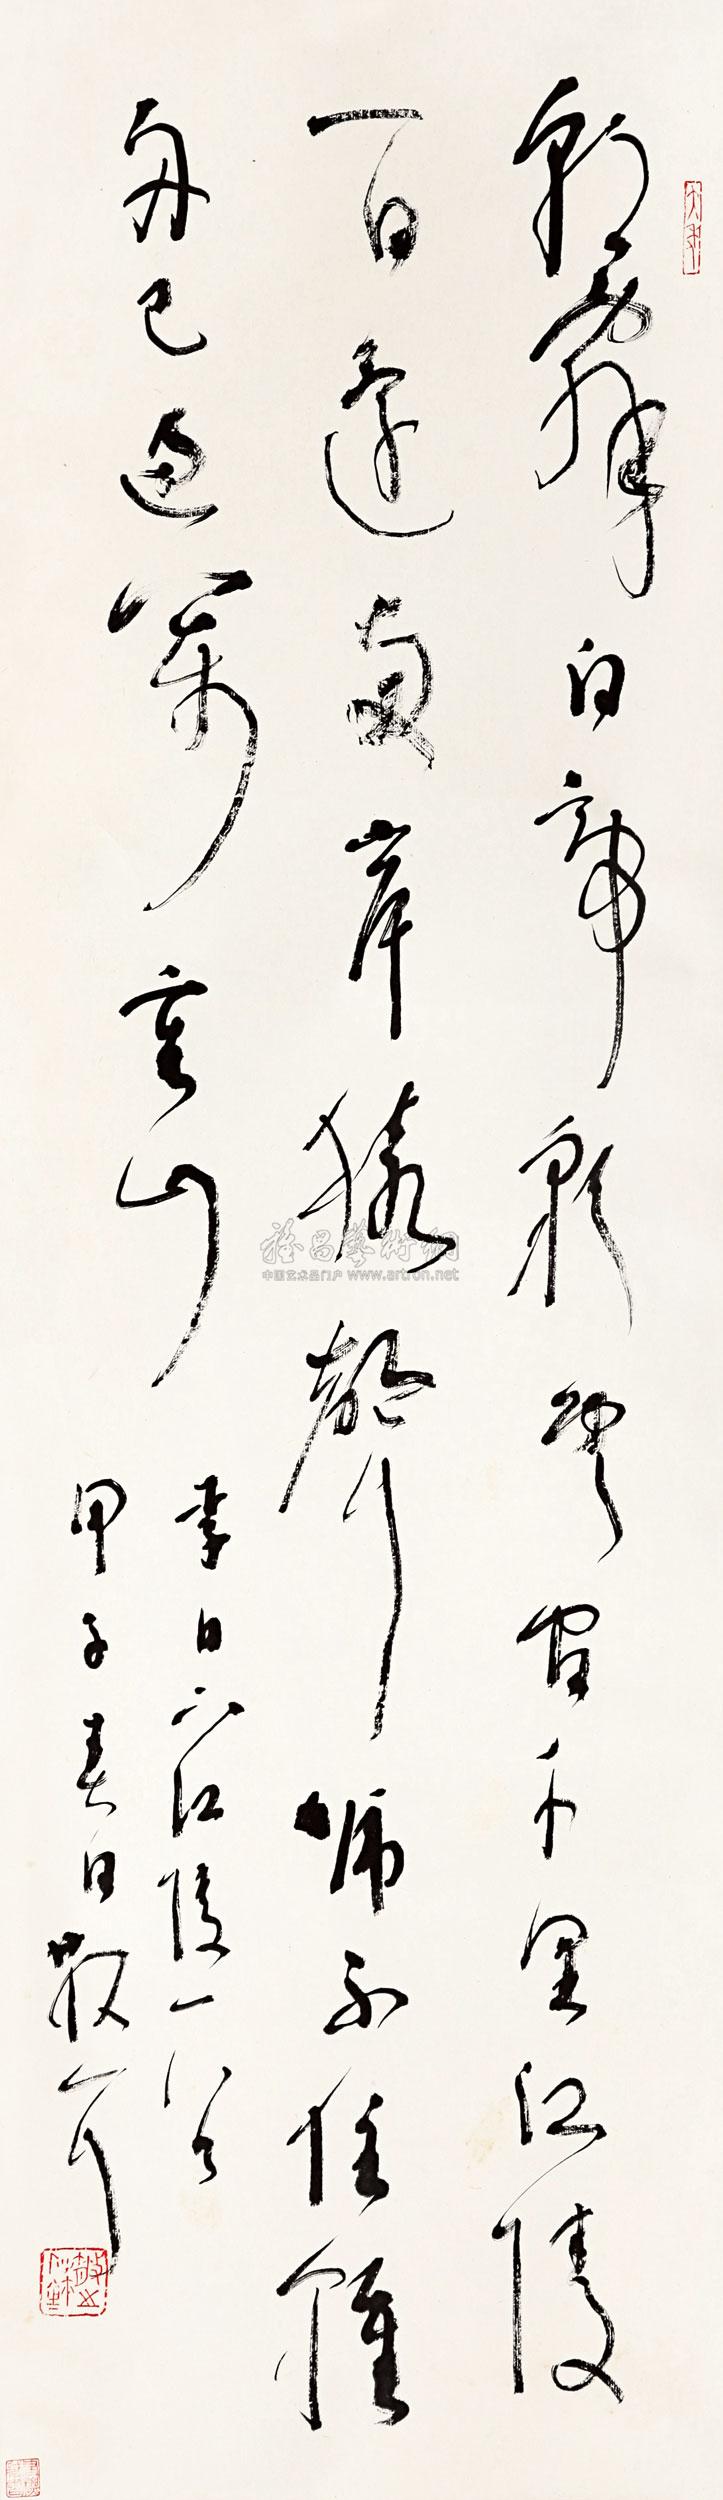 朝辭白帝彩雲間千里江陵
一日還兩岸猿聲啼不住輕
舟已過萬重山
李白下江陵一首
甲子春日散耳
雅昌藝術網
中国艺术品门户 www.artron.net